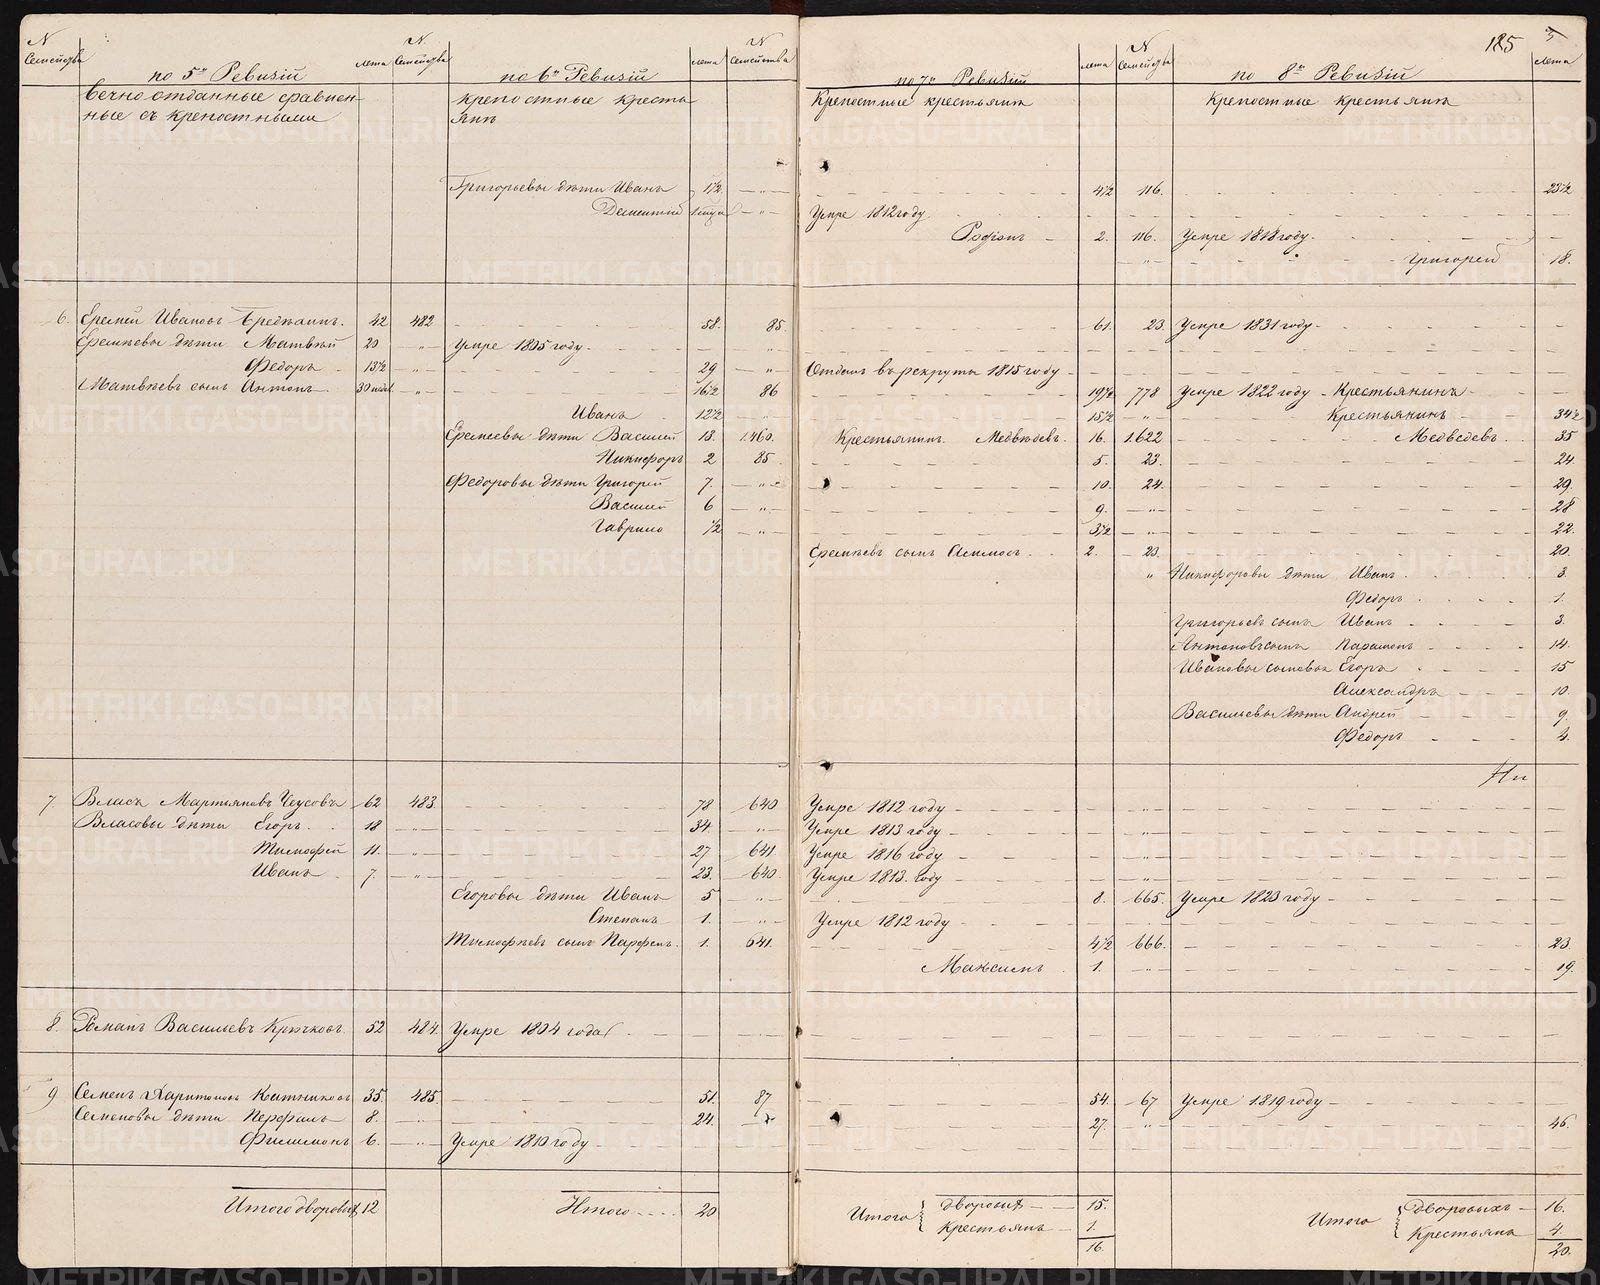 185
N Семейства по 5й Ревизiи лета N. Семейства по 6й Ревизiи лета N Семейства по 7й Ревизiи лета N Семейства по 8й Ревизiи лета
Вечно отданные сравнен- крепостные кресть Крепостные крестьяня Крепостные крестьяня
ные съ крепостными янъ
Григорьевы дѣти Иванъ 1½ — „ — 4½ 116. 23½
Дементий — „ — Умре 1812 году.
Родiонъ 2. 116. Умре 1818 году.
„ Григорей 18.
6. Еремей Ивановъ 42 482 58. 85. 61. 23. Умре 1831 году.
Еремѣевы дѣти Матвѣй 20 „ Умре 1805 году. „
Федоръ 13½ „ 29 „ Отданъ въ рекруты 1815 году
Матвѣевъ сынъ Антонъ 30 недел „ 16½ 86 19½ 778 Умре 1822 году Крестьянинъ
Иванъ 12½ „ 15½ „ Крестьянинъ 34½
Еремеевы дѣти Василей 13. 1460. Крестьянинъ Медвѣдевъ. 16. 1622 Медведевъ. 35
Никифоръ 2 85. 5. 23. 24.
Федоровы дѣти Григорей 7. „ 10. 24. 29.
Василей 6 „ 9. „ 28
Гаврило ½ „ 3½ „ 22.
Еремѣевъ сынъ 2. 23. 20.
„ Никифоровы дѣти Иванъ. 3.
Федоръ 1.
Григорьевъ сынъ Иванъ 3.
Антоновъ сынъ Парамонъ 14.
Ивановы сыновья Егоръ 15
Александръ 10.
Васильевы дѣти Андрей 9.
Федоръ 4.
7. Власъ Мартьяновъ Чеусовъ 62 483 78 640 Умре 1812 году „
Власовы дѣти Егоръ. 18 „ 34. „ Умре 1813 году „
Тимофей 11. „ 27 641. Умре 1816 году „
Иванъ 7. „ 23. 640. Умре 1813. году „
Егоровы дѣти Иванъ 5 „ 8. 665. Умре 1823 году
Степанъ 1. „ Умре 1812 году
Тимофѣевъ сынъ Парфенъ. 1. 641. 4½ 666. 23.
Максимъ 1. „ 19.
8. Романъ Васильевъ Крючковъ 52 484. Умре 1804 года
9 Семенъ Харитоновъ 35. 485. 51. 87 54. 67 Умре 1819 году
Семеновы дѣти Перфилъ 8. „ 24. 27. „ 46.
Филимонъ 6. „ Умре 1810 году
Итого дворовыхъ 12 Итого 20 Итого дворовыхъ 15. Итого дворовыхъ 16.
Крестьянъ 1. Крестьянъ 4
16. 20.
METRIKI.GASO-URAL.RU